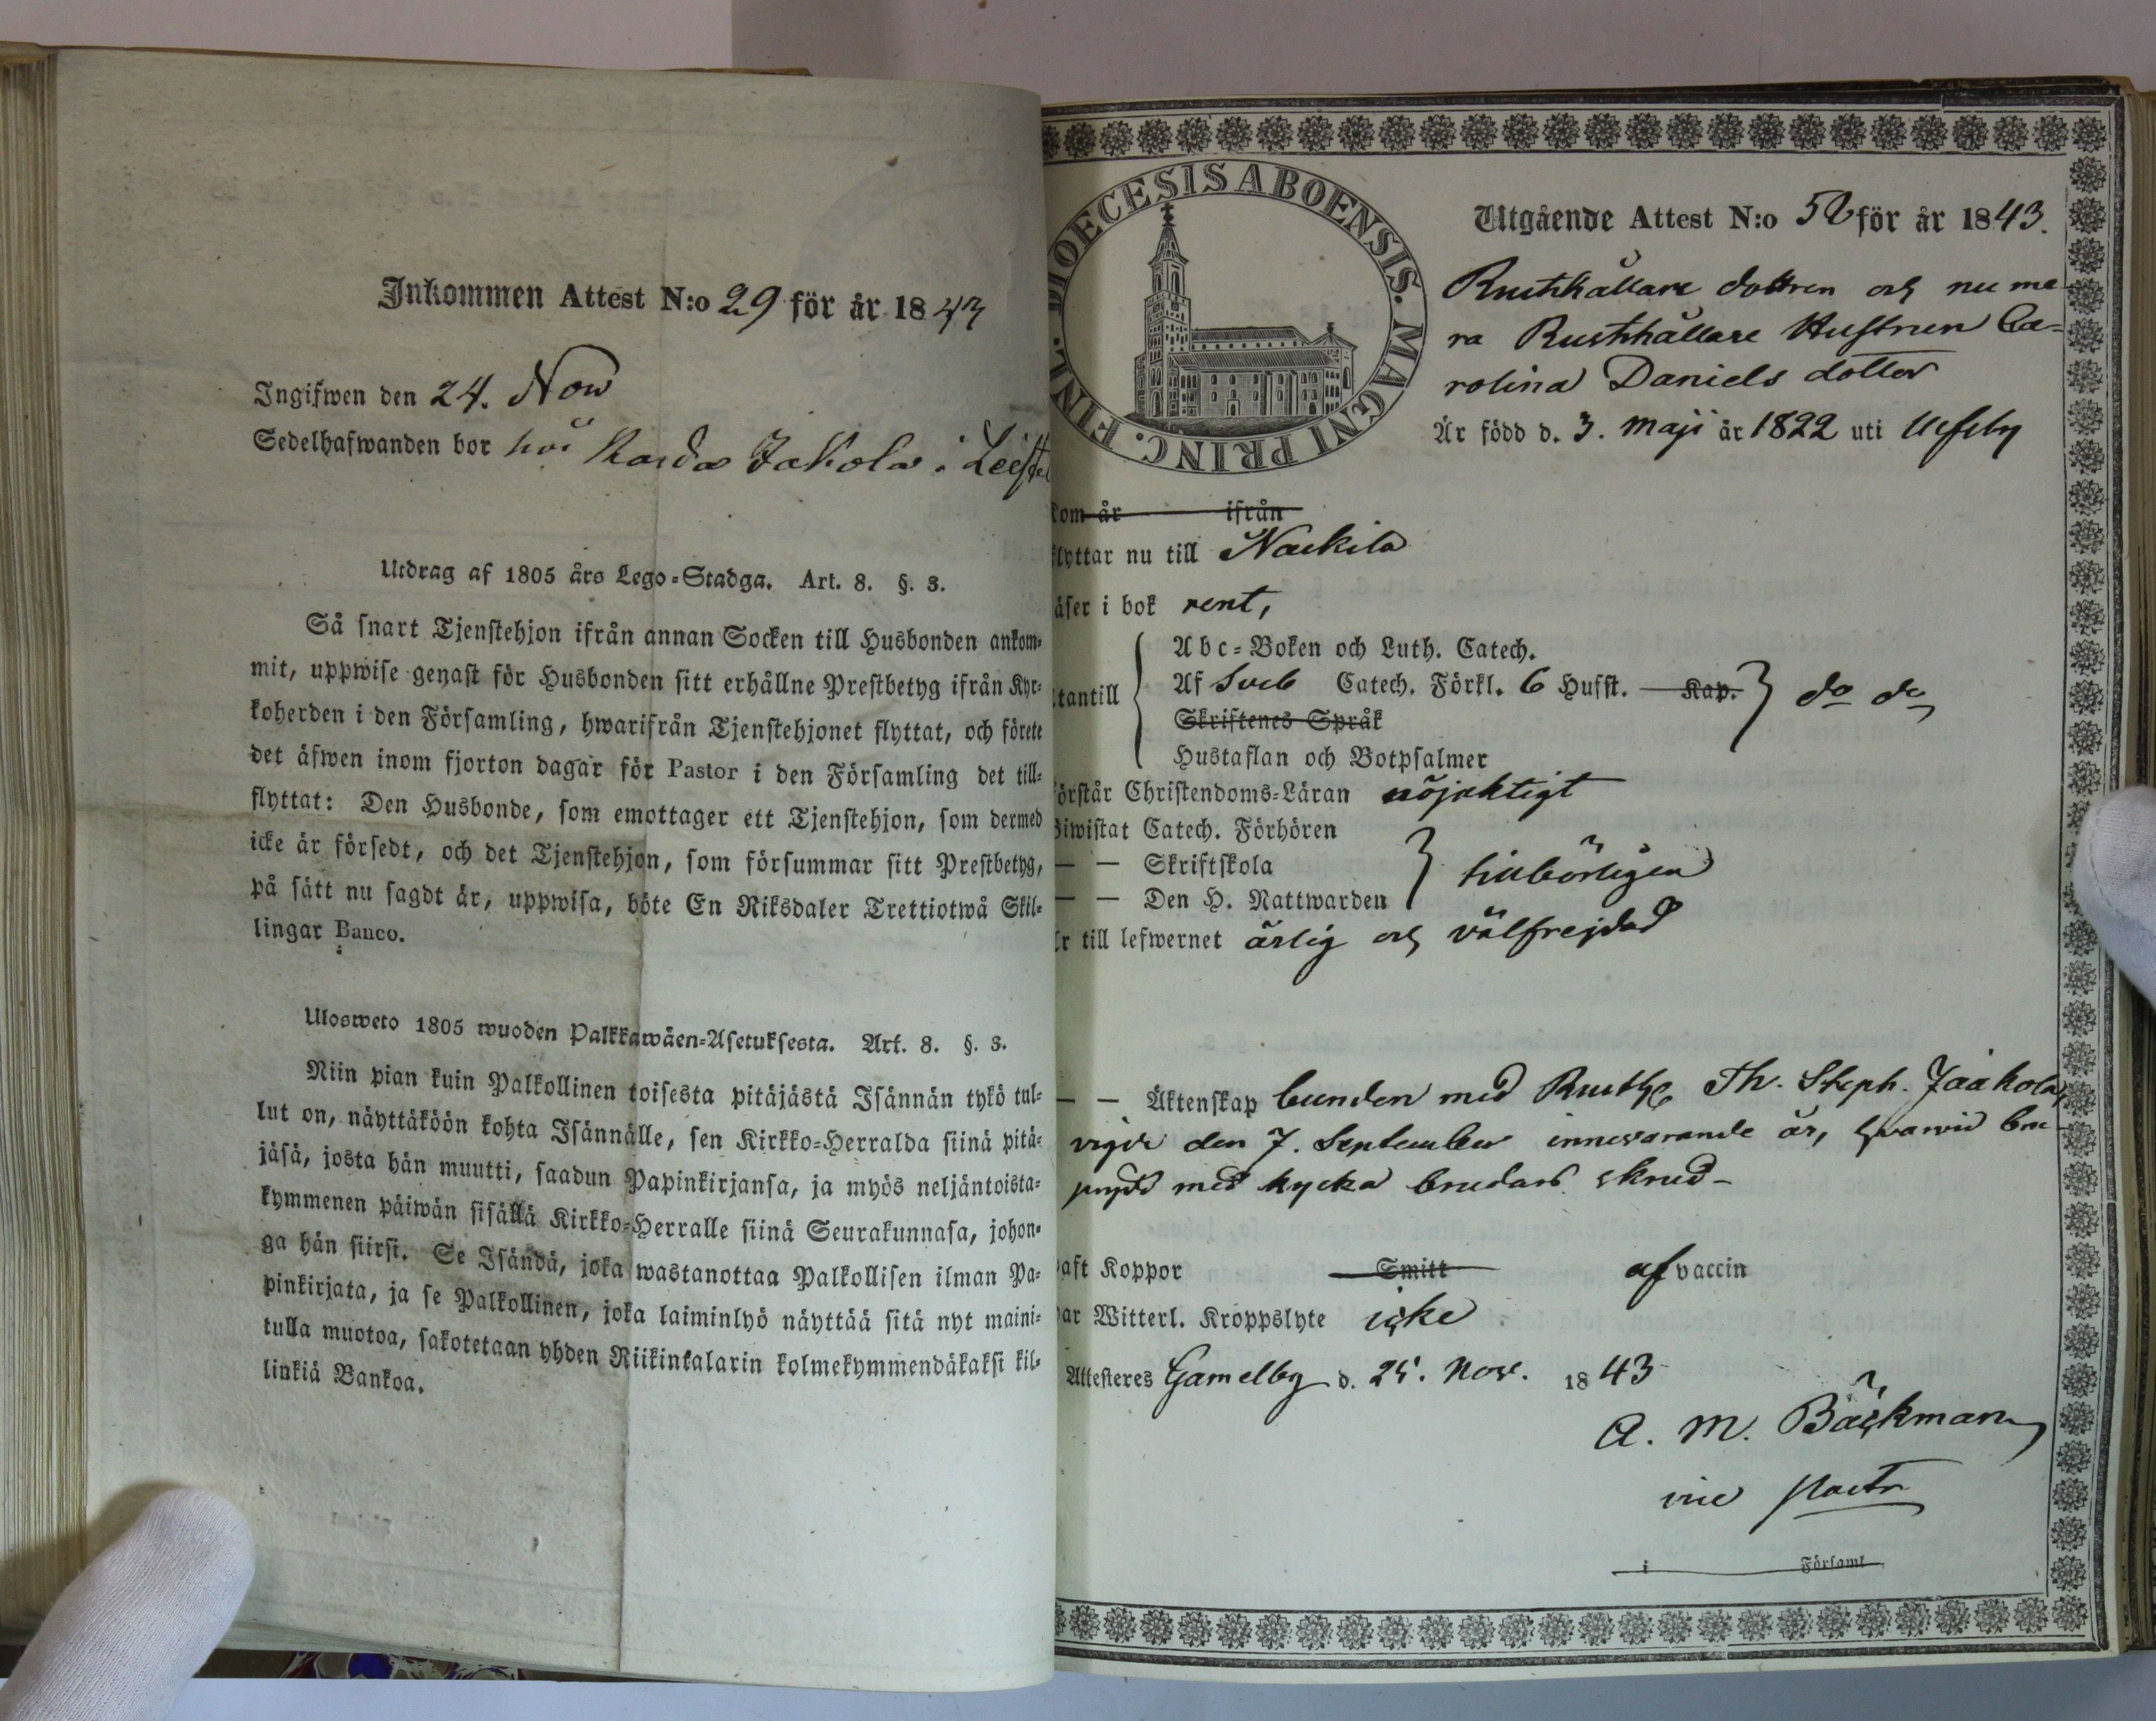 Inkommen Attest N:o 29 för år 1843
Ingifwen den 24. Nov
Sedelhafwanden bor hos Jakola i
Utdrag af 1805 års Lego-Stadga. Art. 8. §. 3.
Så snart Tjenstehjon ifrån annan Socken till Husbonden ankom-
mit, uppwise genast för Husbonden sitt erhållne Prestbetyg ifrån Kyr-
koherden i den Församling, hwarifrån Tjenstehjonet flyttat, och förete
det äfwen inom fjorton dagar för Pastor i den Församling det till-
flyttat: Den Husbonde, som emottager ett Tjenstehjon, som dermed
icke är försedt, och det Tjenstehjon, som försummar sitt Prestbetyg,
på sätt nu sagdt är, uppwisa, böte En Riksdaler Trettiotwå Skil-
lingar Banco.
Ulosweto 1805 wuoden Palkkawäen-Asetuksesta. Art. 8. §. 3.
Niin pian kuin Palkollinen toisesta pitäjästä Isännän tykö tul-
lut on, näyttäköön kohta Isännälle, sen Kirkko-Herralda siinä pitä-
jäsä, josta hän muutti, saadun Papinkirjansa, ja myös neljäntoista-
kymmenen päiwän sisällä Kirkko-Herralle siinä Seurakunnasa, johon-
ga hän siirsi. Se Isändä, joka wastanottaa Palkollisen ilman Pa-
pinkirjata, ja se Palkollinen, joka laiminlyö näyttää sitä nyt maini-
tulla muotoa, sakotetaan yhden Riikintalarin kolmekymmendäkaksi kil-
linkiä Bankoa.
DIOECESIS ABOENSIS. MAGNI PRINC. FINL.
Utgående Attest N:o 50 för år 1843.
Rusthållare dottren och nu me-
ra Rusthållare Hustrun Ca-
rolina Daniels dotter
Är född d. 3. Maji år 1822 uti Ulfsby
kom år ifrån
flyttar nu till Nackila
äser i bok rent,
tantill
Abc-Boken och Luth. Catech.
Af Sveb Catech. Förkl. 6 Hufst. Kap. do do
Skriftenes Språk
Hustaflan och Botpsalmer
örstår Christendoms-Läran nöjaktigt
Biwistat Catech. Förhören
— — Skriftskola
— — Den H. Nattwarden tillbörligen
r till lefwernet ärlig och välfrejdad
— — Äktenskap bunden med Rusth. Th. Steph. Jaakola,
vigde den 7. September innevarande år, hvarvid bru-
prydd med lycka brudars skrud-
aft Koppor Smitt af vaccin
ar Witterl. Kroppslyte icke
Attesteres Gamelby d. 25. Nov. 1843
A. M. Bäckman
vice Pastor
i Församl